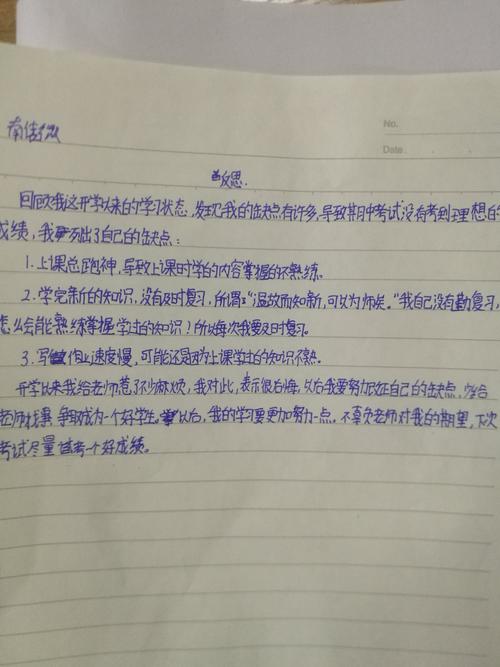 No.
Date
南佳
反思.
回顾我这开学以来的学习状态,发现我的缺点有许多,导致期中考试没有考到理想的
成绩,我列出了自己的缺点:
1.上课总跑神,导致上课时学的内容掌握的不熟练.
2.学完新的知识,没有及时复习,所谓:"温故而知新,可以为师矣."我自己没有勤复习,
怎么会能熟练掌握学过的知识!所以每次我要及时复习.
3.写作业速度慢,可能还是因为上课学过的知识不熟.
开学以来我给老师惹了不少麻烦,我对此,表示很后悔,以后我要努力改正自己的缺点,
老师找事,争取成为一个好学生.以后,我的学习要更加努力一点.不辜负老师对我的期望,下次
考试尽量考一个好成绩.